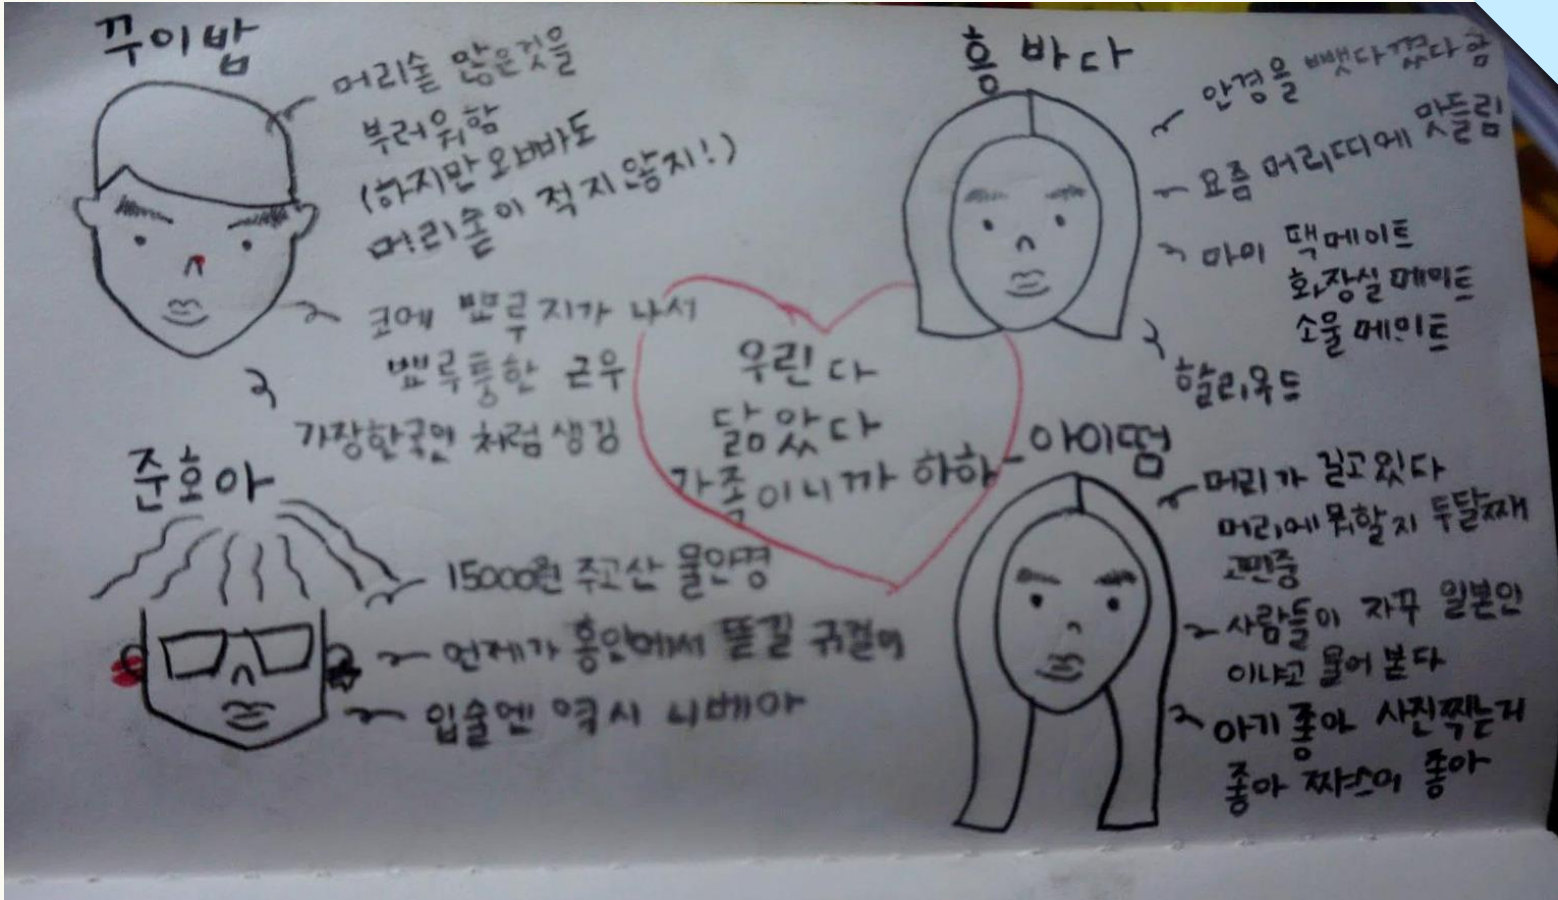 꾸이밥
머리숱 많은것을
부러워함
(하지만 오빠바도
머리숱이 적지 않지!)
코에 뾰루지가 나서
뾰루퉁한 근우
가장한국인 처럼 생김
홍 바다
안경을 뺏다꼈다함
요즘 머리띠에 맛들림
마이 팩메이트
화장실메이트
소울메이트
할리우드
우린 다
닮았다
가족이니까 하하
준호아
15000원 주고산 물안경
언제가 홍안에서 뜯길 귀걸이
입술엔 역시 니베아
아이떰
머리가 길고있다
머리에뭐할지 두달째
고민중
사람들이 자꾸 일본인
이냐고 물어 본다
아기 좋아 사진찍는거
좋아 쨔스미 좋아